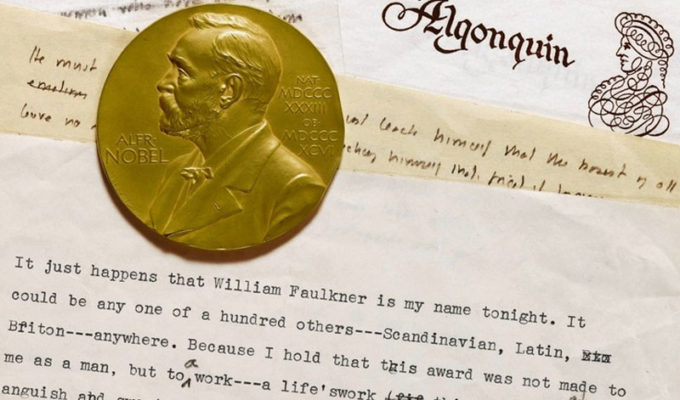 Algonquin
He must
leave no
teach himself that the basest of all
himself that
ALFR.
NOBEL
NAT.
MDCCC
XXXIII
OB.
MDCCC
XCVI
It just happens that William Faulkner is my name tonight. It
could be any one of a hundred others---Scandinavian, Latin,
Briton---anywhere. Because I hold that this award was not made to
me as a man, but to a work---a life'swork
anguish and